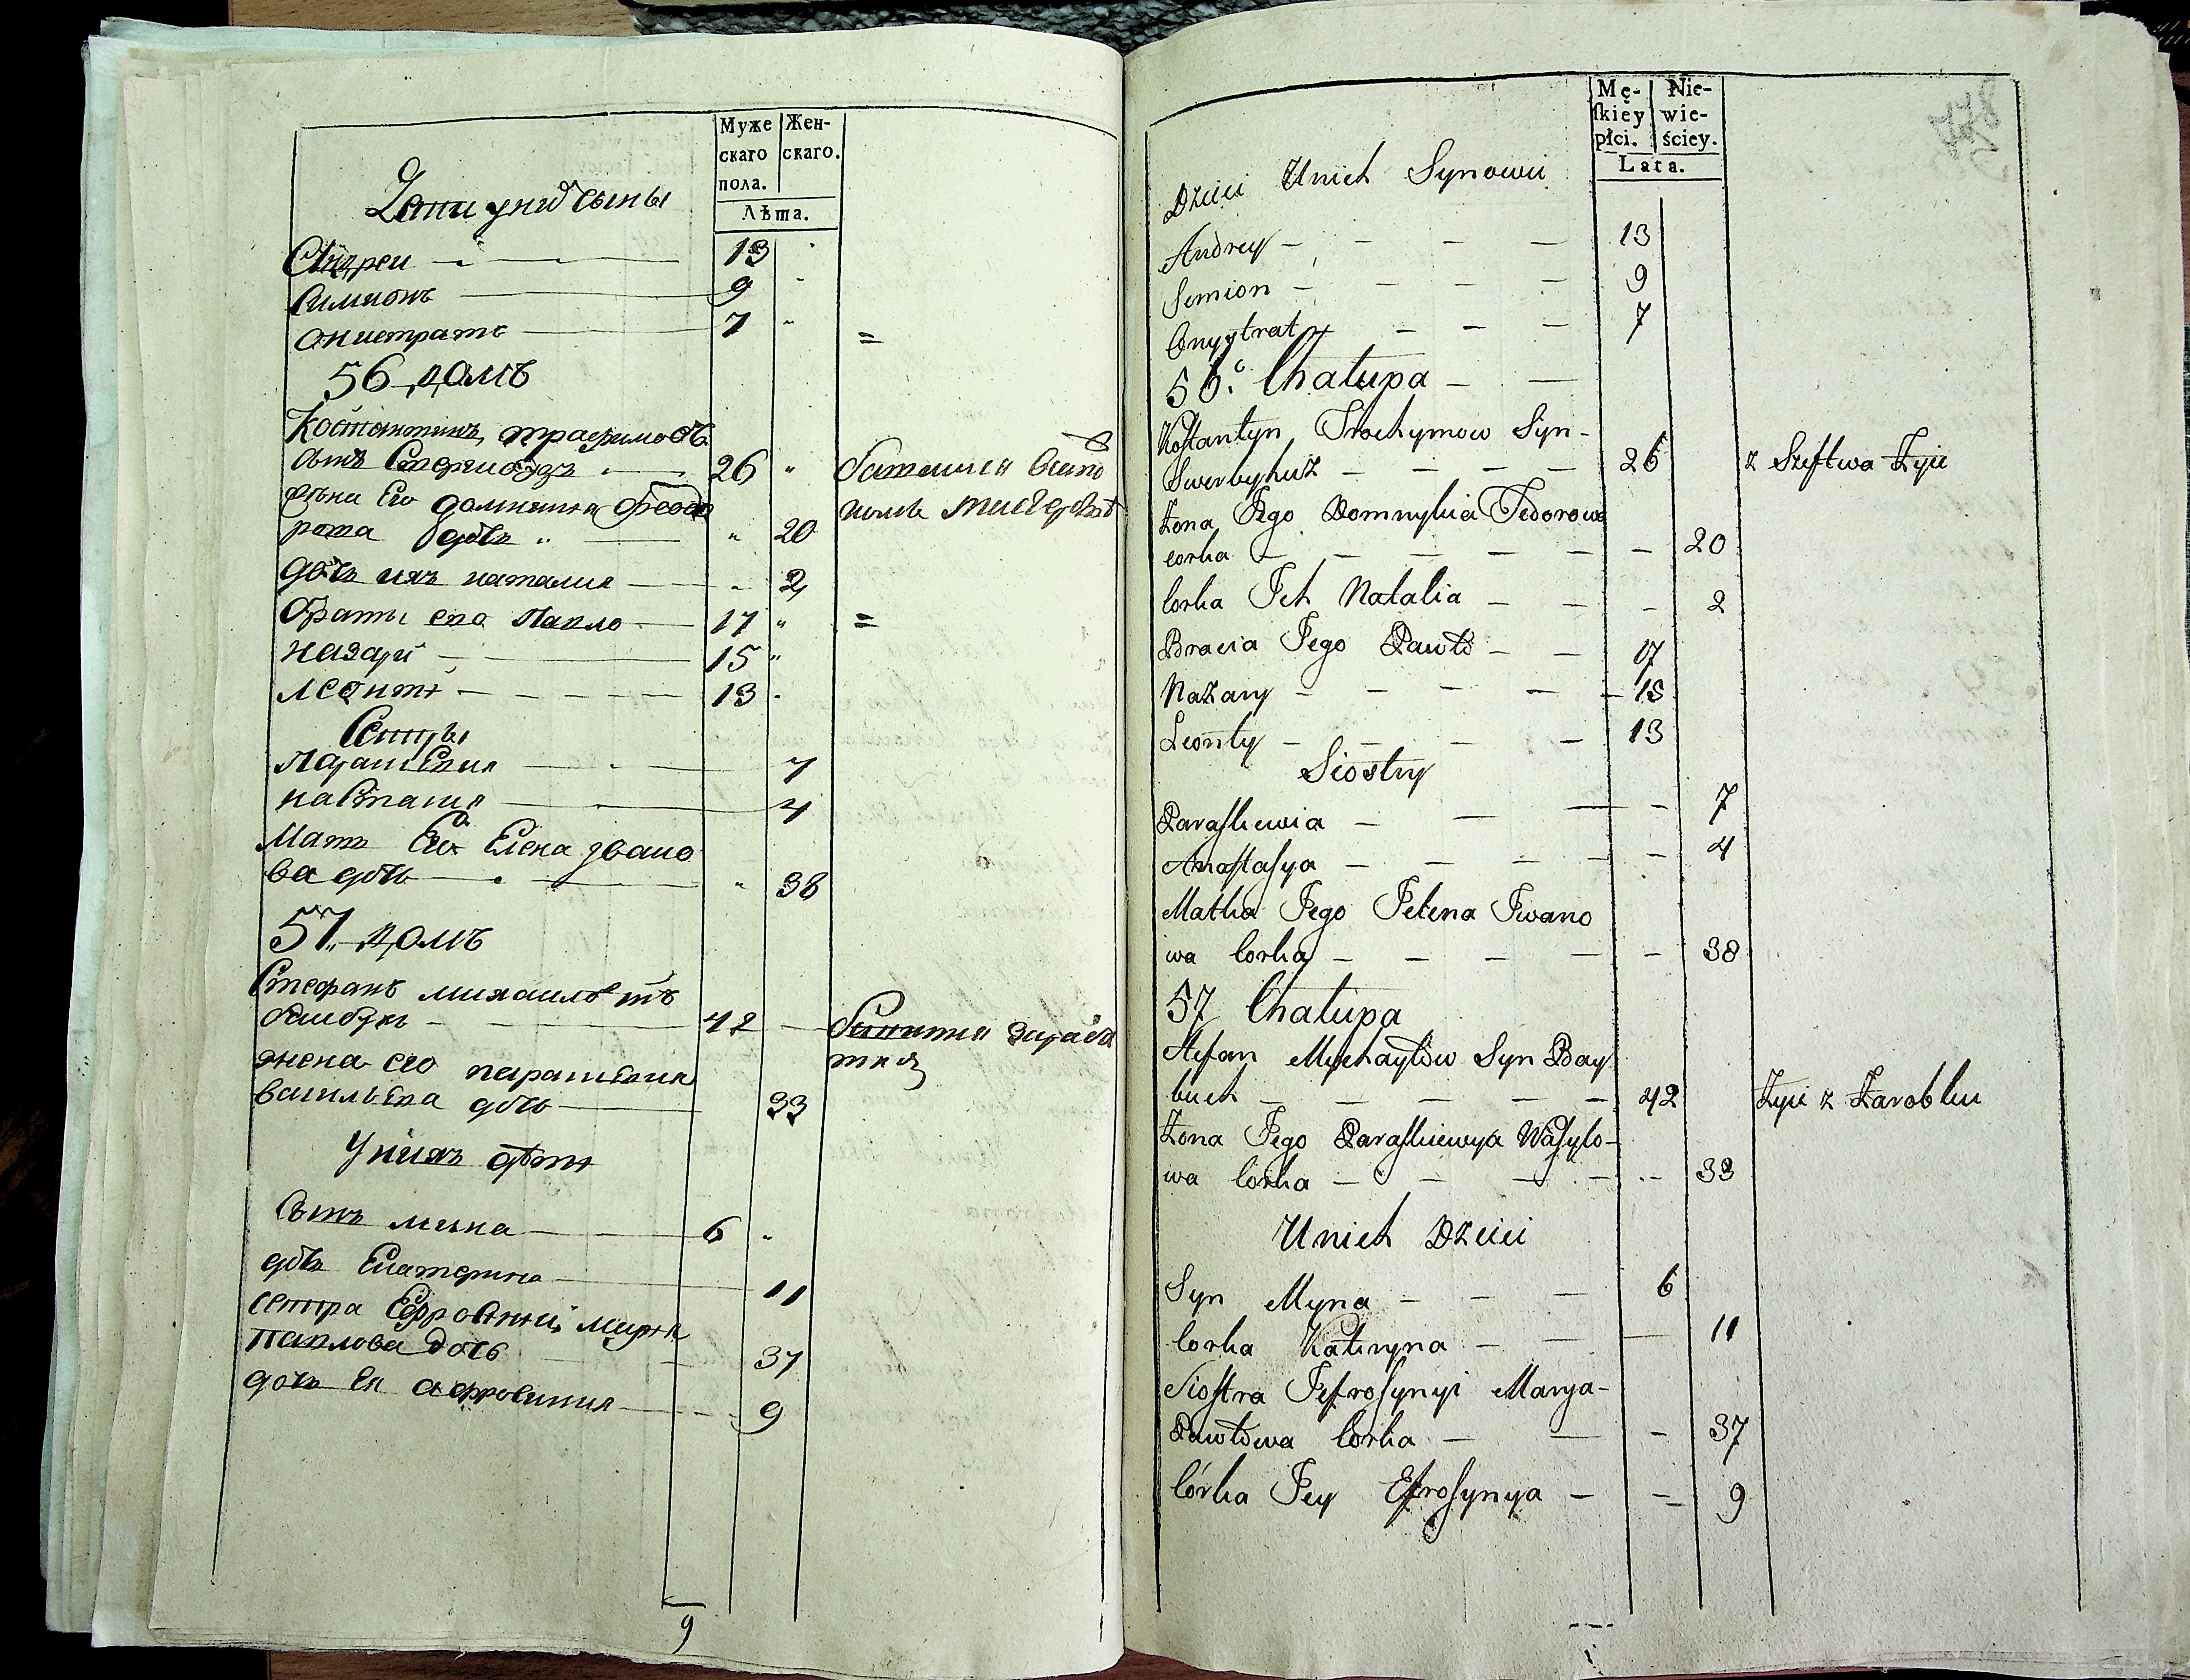 Муже
скаго
пола.
Жен-
скаго.
Лѣта.
Дети у них сыны
Андреи 13
Симионъ 9
Онистратъ 7 =
56 домъ
Костантинъ трафимовъ
сынъ 26
жена Его домникия Феодо
рова дочь 20
дочь ихъ наталия 2
браты его Павло 17 =
назари 15
леонти 13
Сестры
Парашкевия 7
настасия 4
Мать Его Елена ивано
ва дочь 38
57 домъ
Стефанъ михаиловъ
42
жена его парашкевия
васильева дочь 33
У нихъ дети
Сынъ мина 6
дочь Екатерина 11
сестра Ефросинии мария
павлова дочь 37
дочь Ея афросиния 9
9
Mę-
ſkiey
płci.
Nie-
wie-
ściey.
Lata.
Dzieci Unich Synowie
Andrey 13
Semion 9
Onyſtrat 7
56. Chałupa
Koſtantyn Trochymow Syn
Swerbyhuz 26 z Szeſtwa Żyie
Żona Jego Domnykia Fedorowa
corka 20
Corka Jch Natalia 2
Bracia Jego Pawło 17
Nazary 15
Leonty 13
Siostry
Paraſkewia 7
Anaſtaſya 4
Matka Jego Jelena Jwano
wa Corka 38
57 Chałupa
Stefan Mychayłow Syn Bay
buch 42 Żyie z Zarobku
Żona Jego Paraſkiewya Waſylo-
wa Corka 33
Unich Dzieci
Syn Myna 6
Corka Kateryna 11
Sioſtra Jefroſynyi Marya
Pawłowa Corka 37
Córka Jey Efroſynya 9